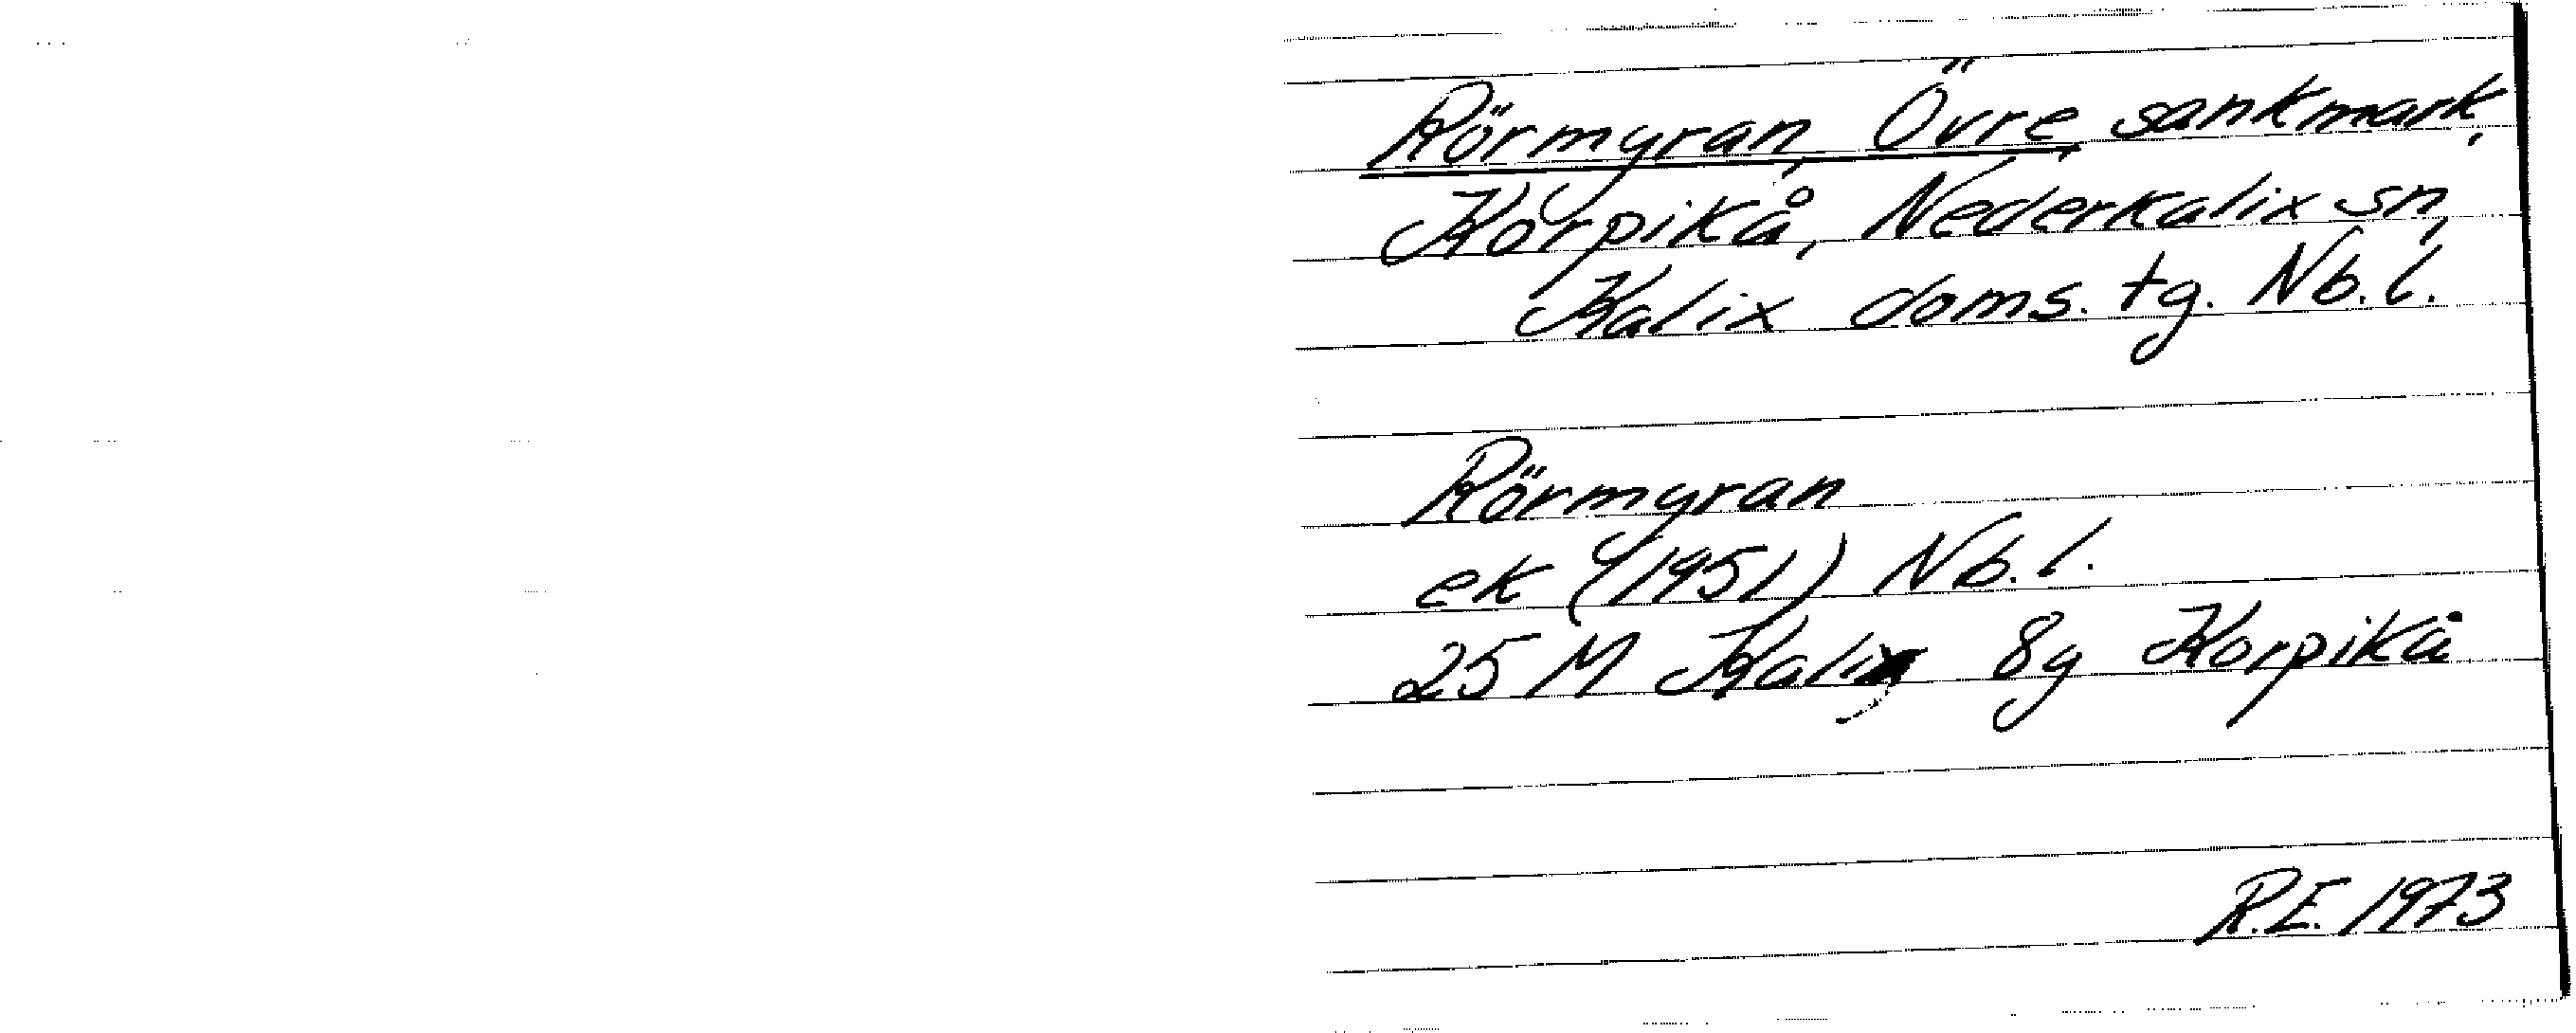 Rörmyran, Övre, sankmark,
Korpikå, Nederkalix sn,
Kalix doms. tg. Nb. l.
Rörmyran
ek (1951) Nb. l.
25 M Kalix 8g Korpikå
R.E. 1973